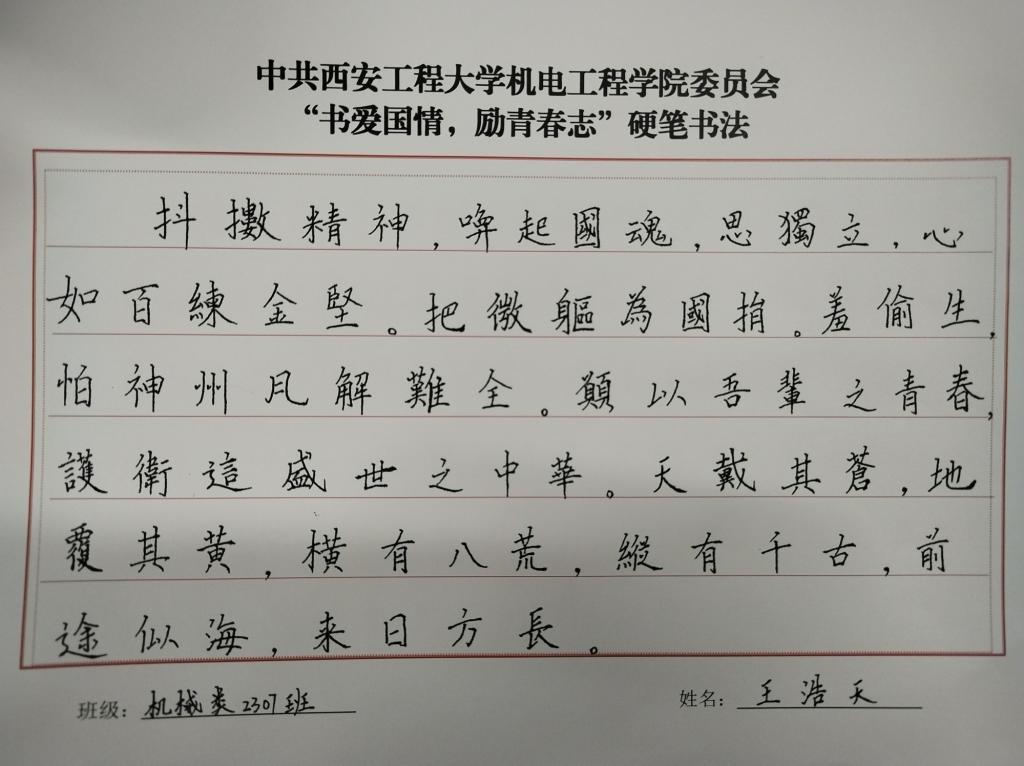 中共西安工程大学机电工程学院委员会
“书爱国情，励青春志”硬笔书法
抖擻精神，喚起國魂，思獨立，心
如百練金堅。把微軀為國捐。羞偷生，
怕神州瓦解難全。願以吾輩之青春，
護衛這盛世之中華。天戴其蒼，地
覆其黄，橫有八荒，縱有千古，前
途似海，来日方長。
班级：机械类2307班
姓名：王浩天